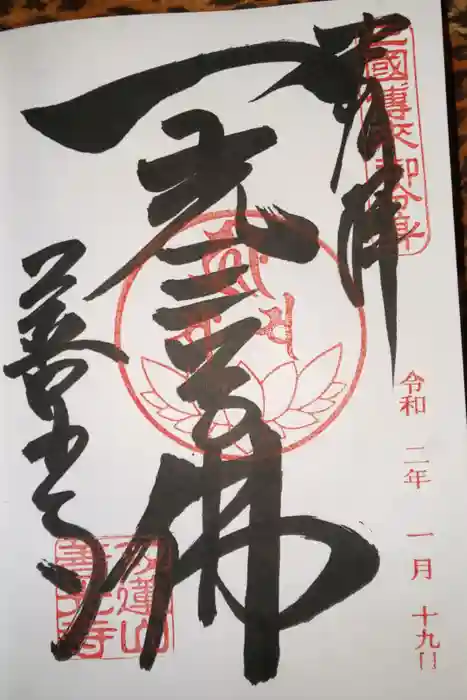 奉拝
三國傳来御分身
令和 二年 一月 十九日
一光三尊佛
善光寺
善光寺